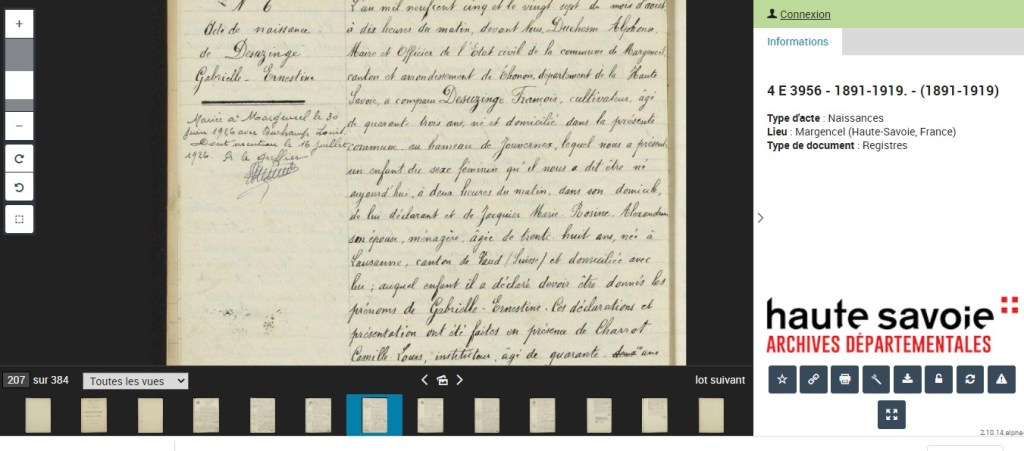 N° 6
Acte de naissance
de Desuzinge
Gabrielle - Ernestine
Mariée à Margencel le 30
juin 1926 avec Duchamp Louis.
Dont mention le 16 juillet
1926. Le greffier
L'an mil neuf cent cinq et le vingt sept du mois d'août
à dix heures du matin, devant Nous, Duchesne Alphonse,
Maire et Officier de l'Etat civil de la commune de Margencel,
canton et arrondissement de Thonon, département de la Haute
Savoie, a comparu Desuzinge François, cultivateur, âgé
de quarante trois ans, né et domicilié dans la présente
commune au hameau de Jouvernex, lequel nous a présenté
un enfant du sexe féminin qu'il nous a dit être né
aujourd'hui, à deux heures du matin, dans son domicile,
de lui déclarant et de Jacquier Marie Rosine Alexandrine
son épouse, ménagère, âgée de trente huit ans, née à
Lausanne, canton de Vaud (Suisse) et domiciliée avec
lui ; auquel enfant il a déclaré devoir être donnés les
prénoms de Gabrielle - Ernestine. Ces déclarations et
présentation ont été faites en présence de Charrot
Camille Louis, instituteur, âgé de quarante ans
207 sur 384
Toutes les vues
lot suivant
Connexion
Informations
4 E 3956 - 1891-1919. - (1891-1919)
Type d'acte : Naissances
Lieu : Margencel (Haute-Savoie, France)
Type de document : Registres
haute savoie
ARCHIVES DÉPARTEMENTALES
2.10.14.alpha